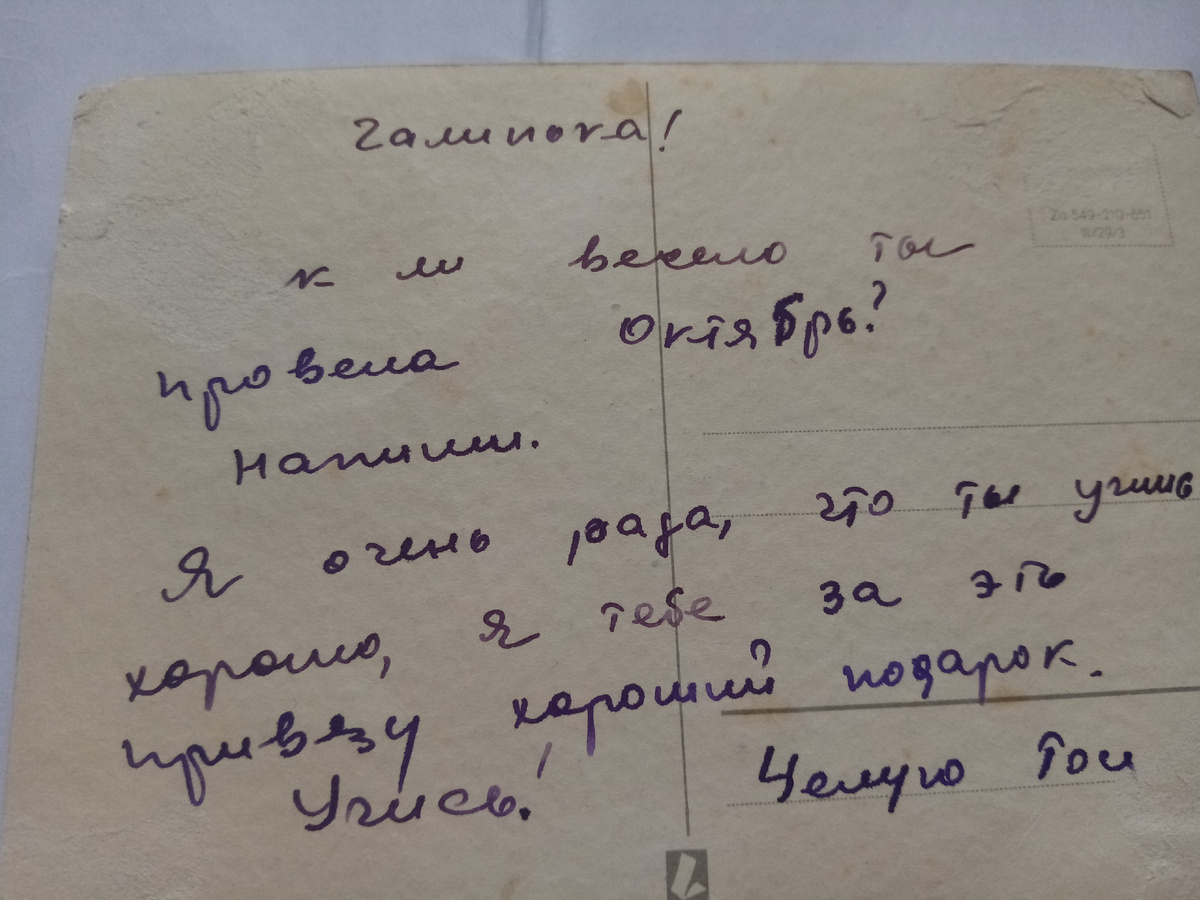 Галиночка!
Zo 549-210-651
III/29/3
к ли весело ты
провела Октябрь?
Напиши.
Я очень рада, что ты учишь
хорошо, я тебе за это
привезу хороший подарок.
Учись! Целую Тои